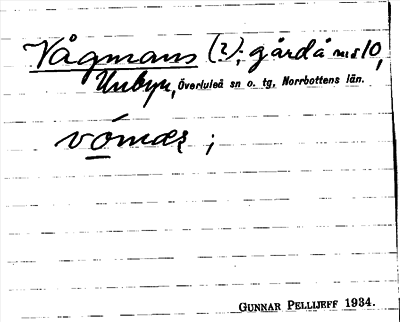 Vågmans (?); gård å nr 10,
Unbyn, Överluleå sn o. tg, Norrbottens län.
vómas ;
GUNNAR PELLIJEFF 1934.